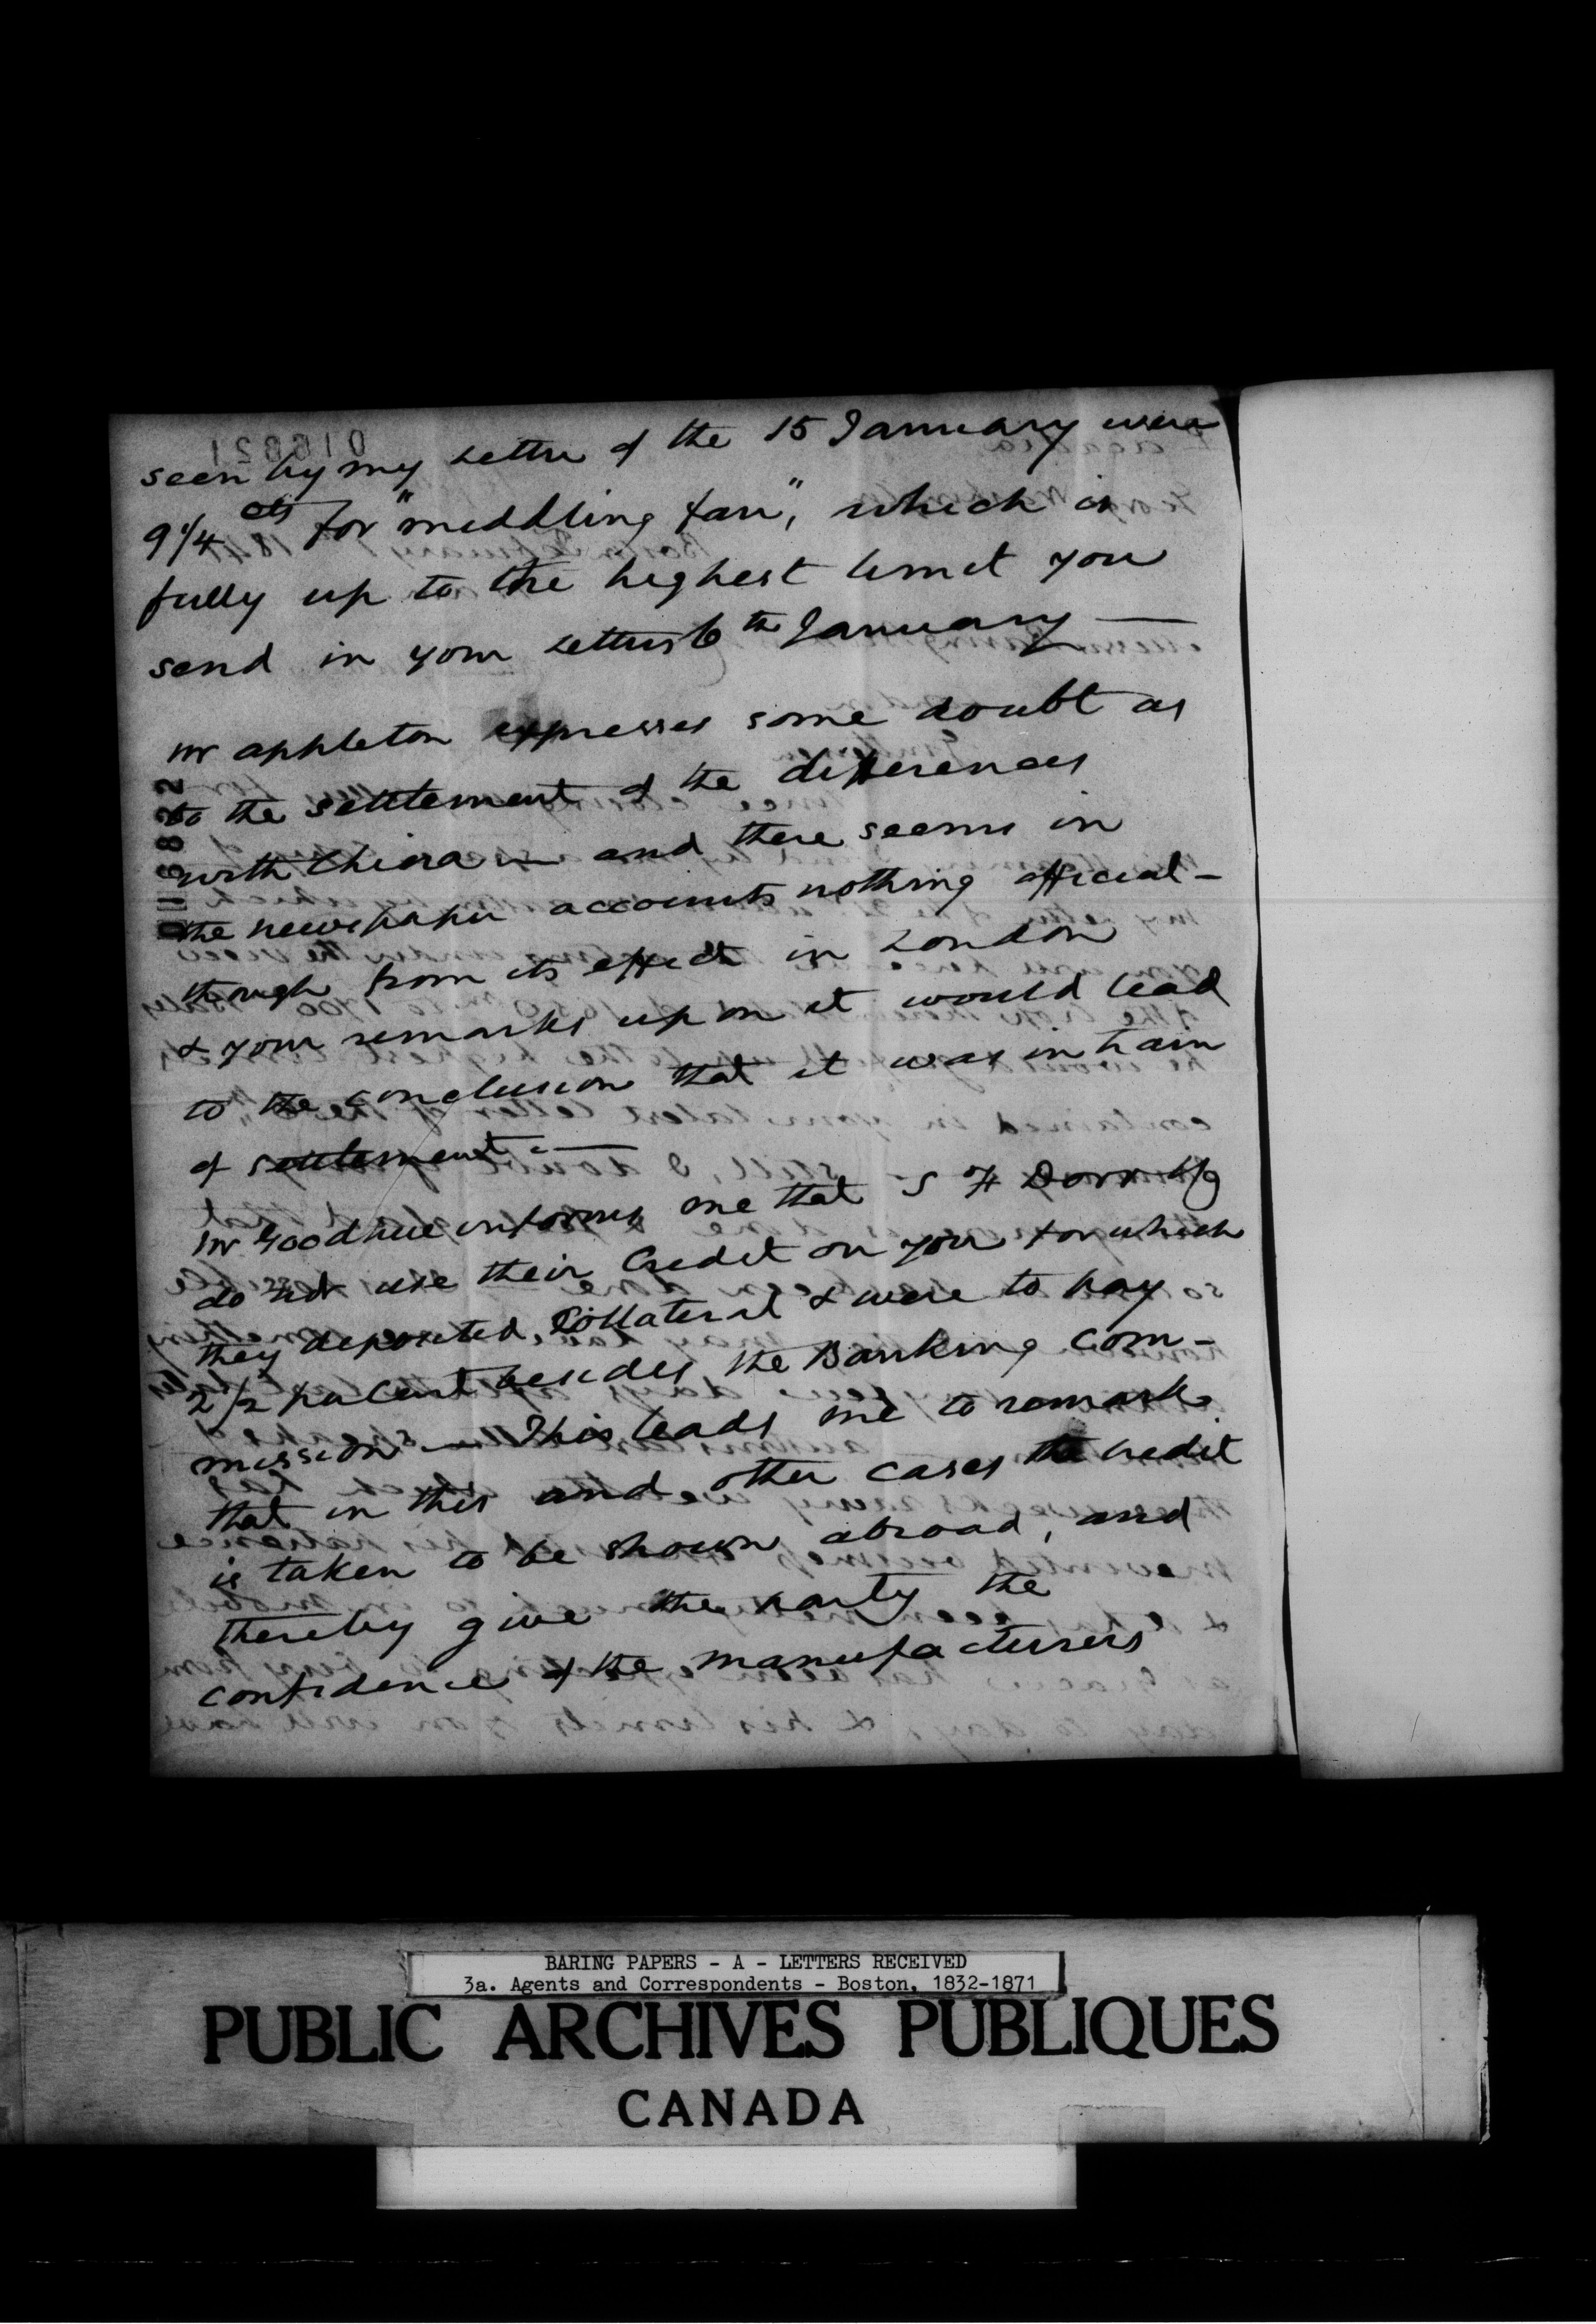 seen by my letter of the 15 January were
9 1/4 cts for "middling fair", which is
fully up to the highest limit you
send in your letters 6th January —
Mr Appleton expresses some doubt as
to the settlement of the differences
with China — and there seems in
the newspaper accounts nothing official -
though from its effect in London
& your remarks upon it would lead
to the conclusion that it was in train
of settlement —
Mr Goodhue informs me that S H Dorr &Co
do not use their Credit on you for which
they deposited Collateral & were to pay
2 1/2 per Cent besides the Banking Com-
mission — This leads me to remark
that in this and other cases the credit
is taken to be shown abroad, and
thereby give the party the
confidence of the manufacturers
016822
016821
BARING PAPERS - A - LETTERS RECEIVED
3a. Agents and Correspondents - Boston, 1832-1871
PUBLIC ARCHIVES PUBLIQUES
CANADA